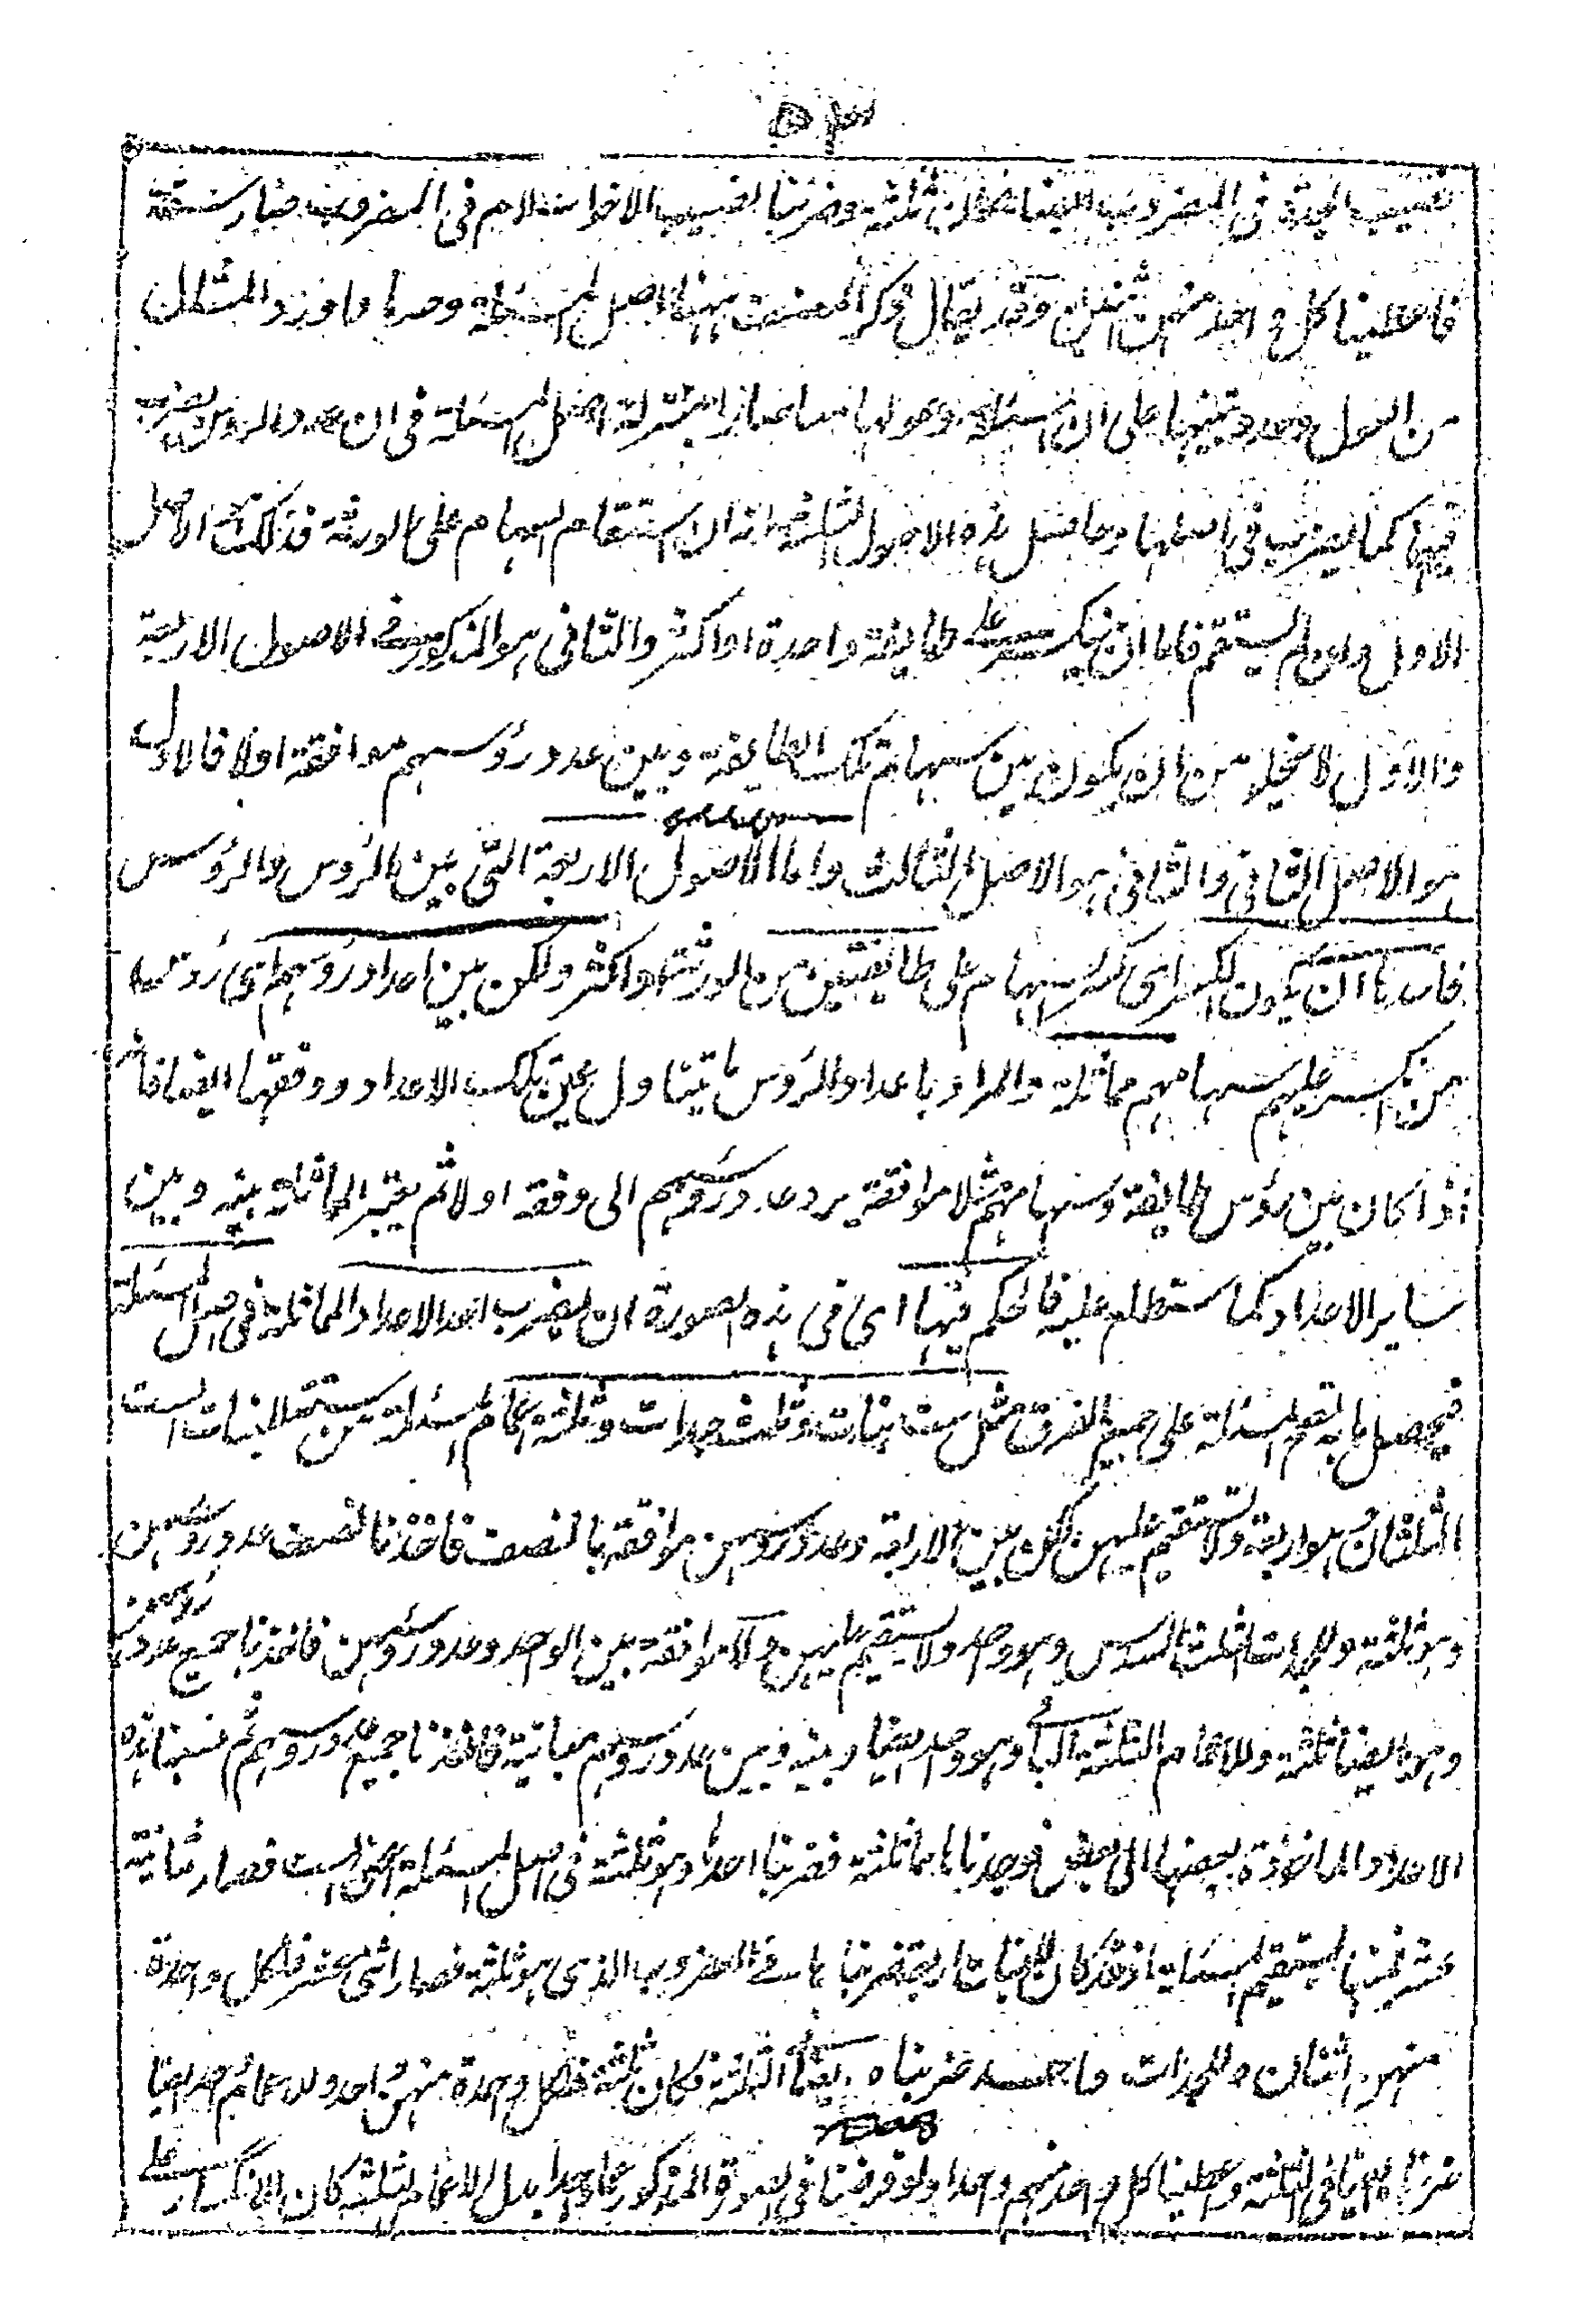 نصيب الجدة في المضروب ايضا فكان ثلثة وضربنا نصيب الاخوات لام في المضروب فصار ستة
فاعطينا كل واحدة منهن اثنين وقد يقال ذكر المصنف ههنا اصل المسئلة وحدها واورد المثالين
من العول وحده تنبيها على ان المسئلة وعولها معا بمنزلة اصل المسئلة في ان عدد الرؤس يضرب
فيها كما يضرب في اصلها وحاصل هذه الاصول الثلثة انه ان استقام السهام على الورثة فذلك الاصل
الاول وان لم يستقم فاما ان ينكسر على طايفة واحدة او اكثر والثاني هو المذكور في الاصول الاربعة
والاول لا يخلو من ان يكون بين سهام تلك الطايفة وبين عدد رؤسهم موافقة اولا فالاول
هو الاصل الثاني والثاني هو الاصل الثالث واما الاصول الاربعة التي بين الرؤس والرؤس
فاحدها ان يكون الكسر اي كسر السهام على طايفتين من الورثة او اكثر ولكن بين اعداد رؤسهم اي رؤس
من انكسر عليهم سهامهم مماثلة والمراد باعداد الرؤس ما يتناول عين تلك الاعداد ووفقها ايضا فانه
اذا كان بين رؤس طايفة وسهامهم مثلا موافقة يرد عدد رؤسهم الى وفقه اولا ثم يعتبر المماثلة بينه وبين
ساير الاعداد كما ستطلع عليه فالحكم فيها اي في هذه الصورة ان يضرب احد الاعداد المماثلة في اصل المسئلة
فيحصل ما به تصح المسئلة على جميع الفرق مثل ست بنات وثلث جدات وثلثة اعمام المسئلة من ستة للبنات الست
الثلثان وهو اربعة ولا تستقيم عليهن لكن بين الاربعة وعدد رؤسهن موافقة بالنصف فاخذنا نصف عدد رؤسهن
وهو ثلثة وللجدات الثلث السدس وهو واحد ولا يستقيم عليهن ولا موافقة بين الواحد وعدد رؤسهن فاخذنا جميع عدد رؤسهن
وهو ايضا ثلثة وللاعمام الثلثة الباقي وهو واحد ايضا وبينه وبين عدد رؤسهم مباينة فاخذنا جميع عدد رؤسهم ثم نسبنا هذه
الاعداد الماخوذة بعضها الى بعض فوجدناها مماثلة فضربنا احدها وهو ثلثة في اصل المسئلة اعني الست فصار ثمانية
عشر فمنها يستقيم المسئلة اذ قد كان للبنات اربعة ضربناها في المضروب الذي هو ثلثة فصار اثني عشر فلكل واحدة
منهن اثنان وللجدات واحد ضربناه ايضا في الثلثة فكان ثلثة فلكل واحدة منهن واحد وللاعمام واحد ايضا
ضربناه ايضا في الثلثة واعطينا كل واحد منهم واحدا ولو فرضنا في الصورة المذكورة عما واحدا بدل الاعمام الثلثة كان الانكسار على